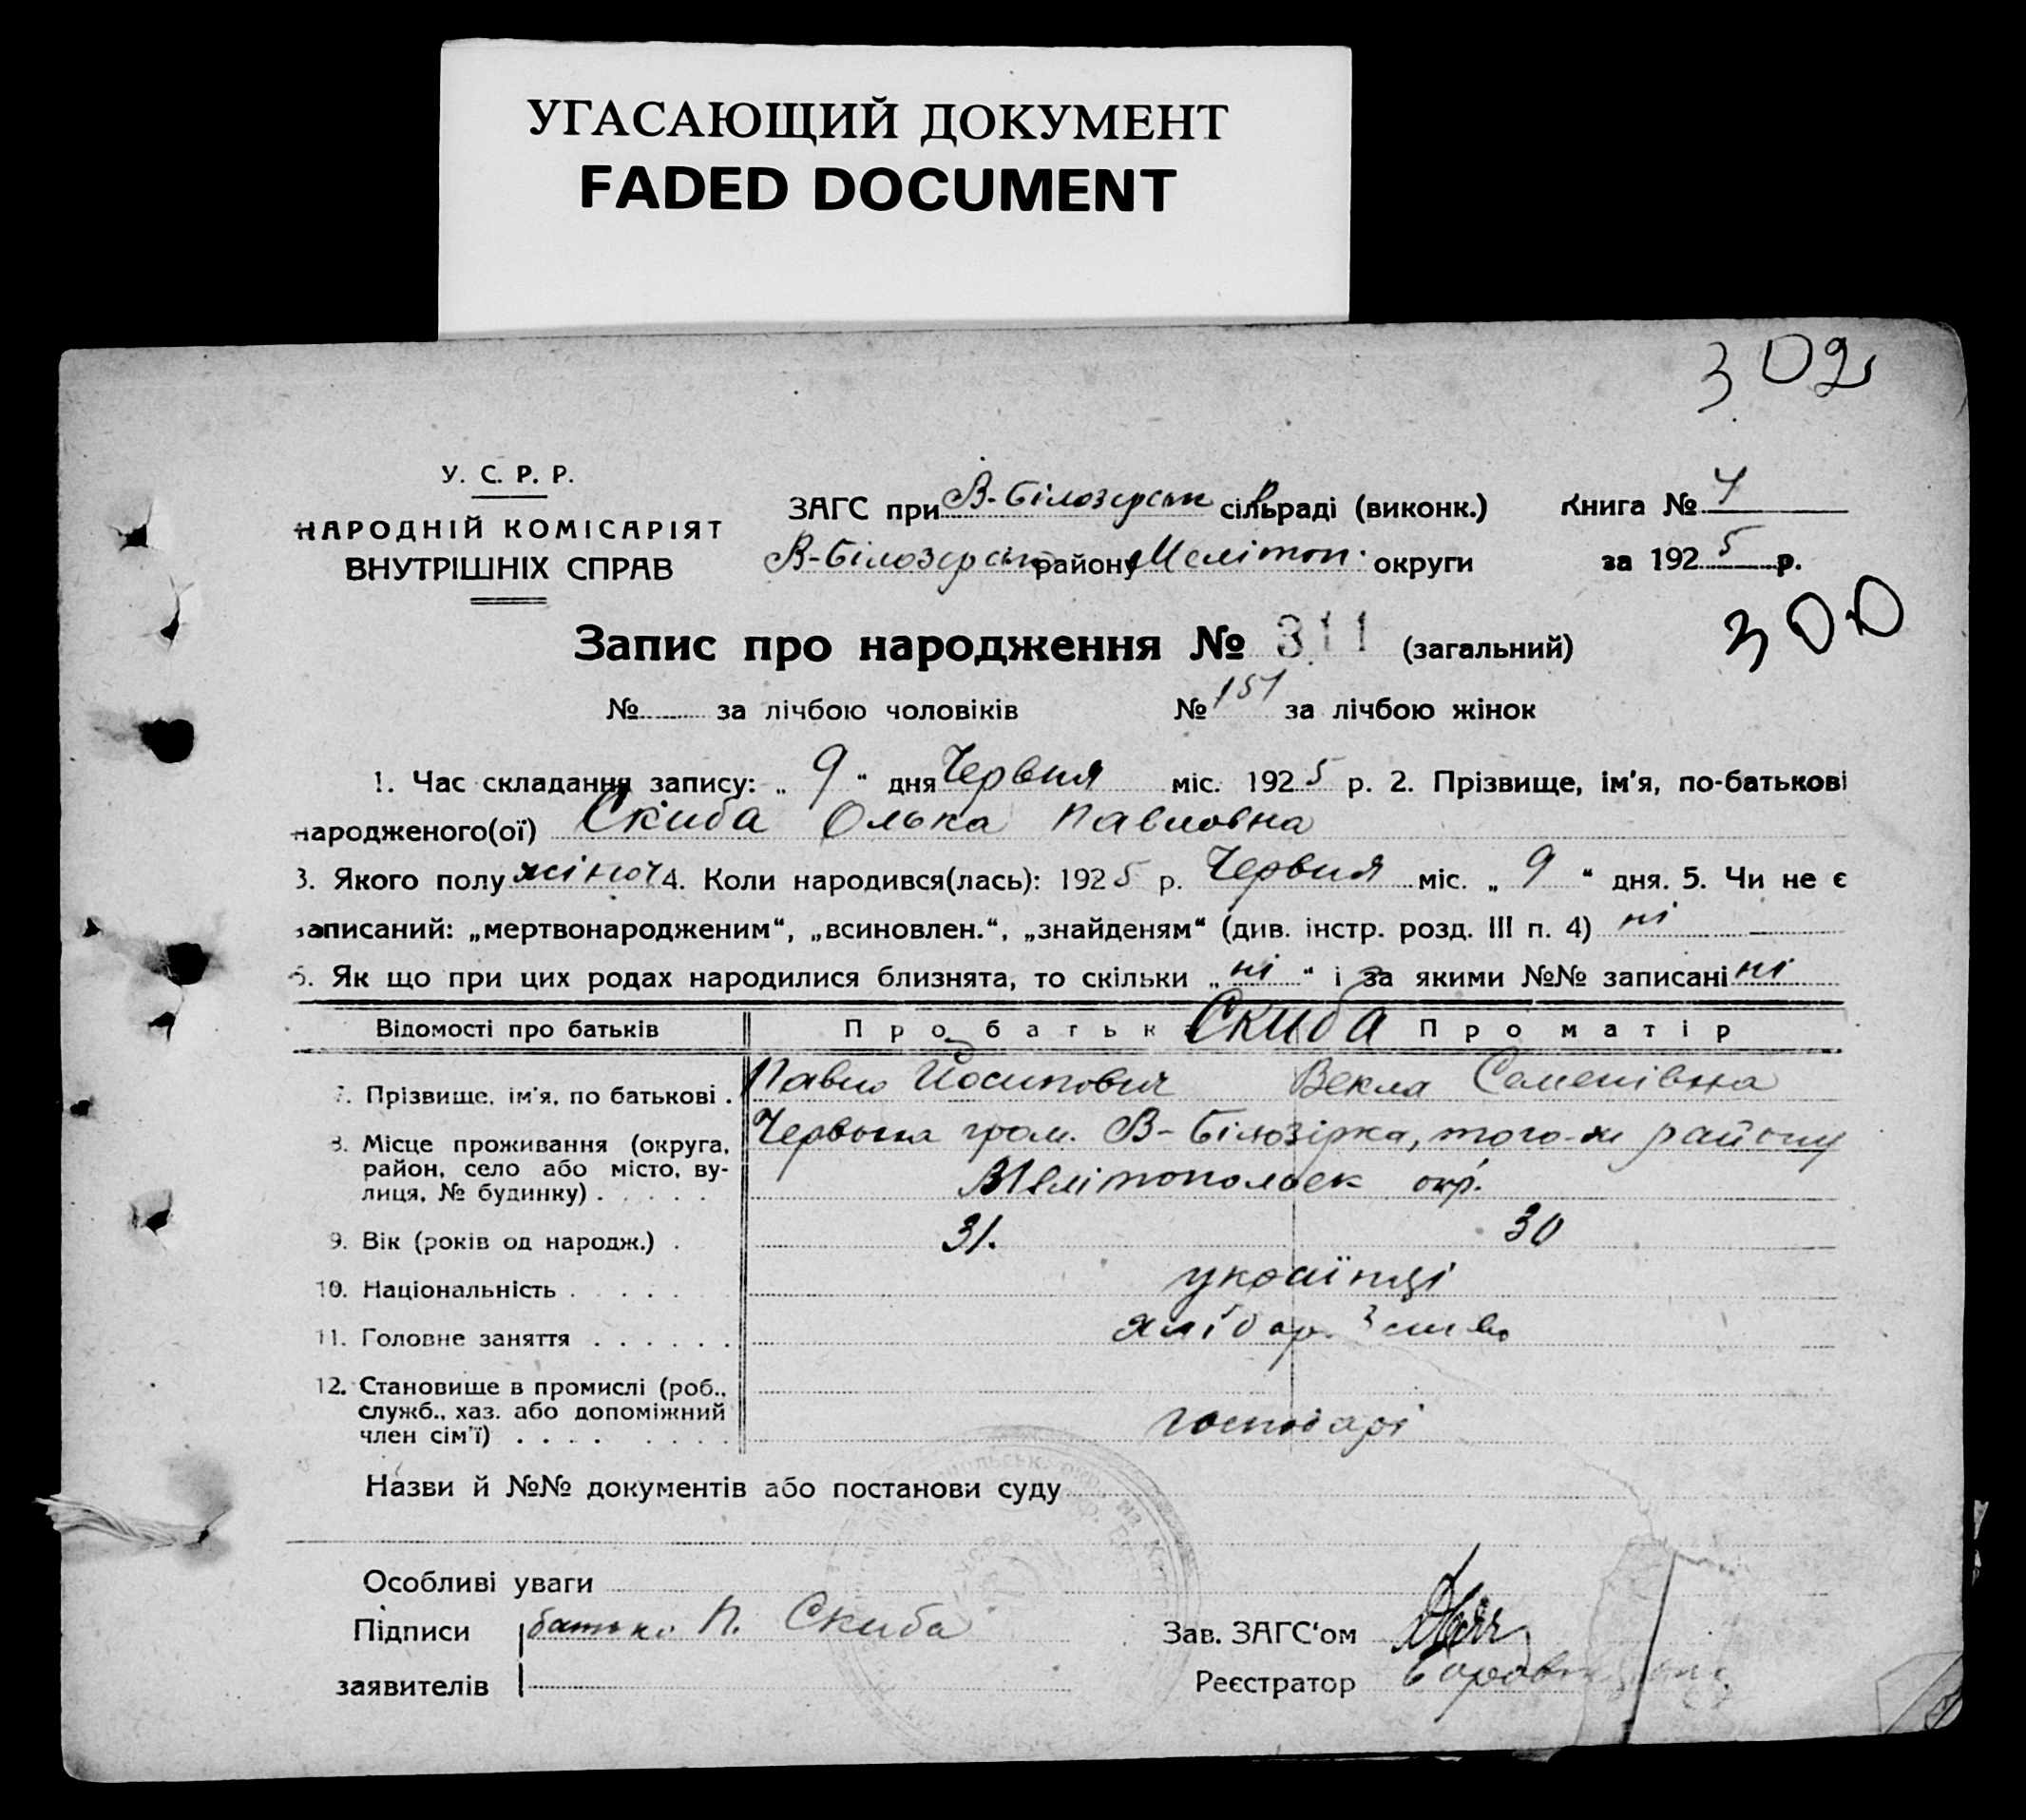 УГАСАЮЩИЙ ДОКУМЕНТ
FADED DOCUMENT
302
У. С. Р. Р.
НАРОДНІЙ КОМІСАРІЯТ
ВНУТРІШНІХ СПРАВ
ЗАГС при В-Білозерськ сільраді (виконк.)
Книга № 4
В-Білозерськ району Мелітоп. округи
за 1925 р.
300
Запис про народження № 311 (загальний)
№ за лічбою чоловіків № 151 за лічбою жінок
1. Час складання запису: „ 9 “ дня Червня міс. 1925 р. 2. Прізвище, ім'я, по-батькові
народженого(ої) Скиба Олька Павловна
3. Якого полу жіноч 4. Коли народився(лась): 1925 р. Червня міс. „ 9 “ дня. 5. Чи не є
записаний: „мертвонародженим“, „всиновлен.“, „знайденям“ (див. інстр. розд. III п. 4) ні
6. Як що при цих родах народилися близнята, то скільки „ ні “ і за якими №№ записані ні
Відомості про батьків Про батьк Скиба Про матір
7. Прізвище, ім'я, по батькові . Павло Йосипович Векла Семенівна
8. Місце проживання (округа, Червона гром. В-Білозірка, того-ж району
район, село або місто, ву-
лиця, № будинку) . . . . . Мелітопольск окр.
9. Вік (років од народж.) . 31. 30
10. Національність . . . . . українці
11. Головне заняття . . . . . . хлібор.
12. Становище в промислі (роб.,
служб., хаз. або допоміжний
член сім'ї) . . . . . . . . господарі
Назви й №№ документів або постанови суду
Особливі уваги
Підписи батько П. Скиба Зав. ЗАГС‘ом
заявителів Реєстратор